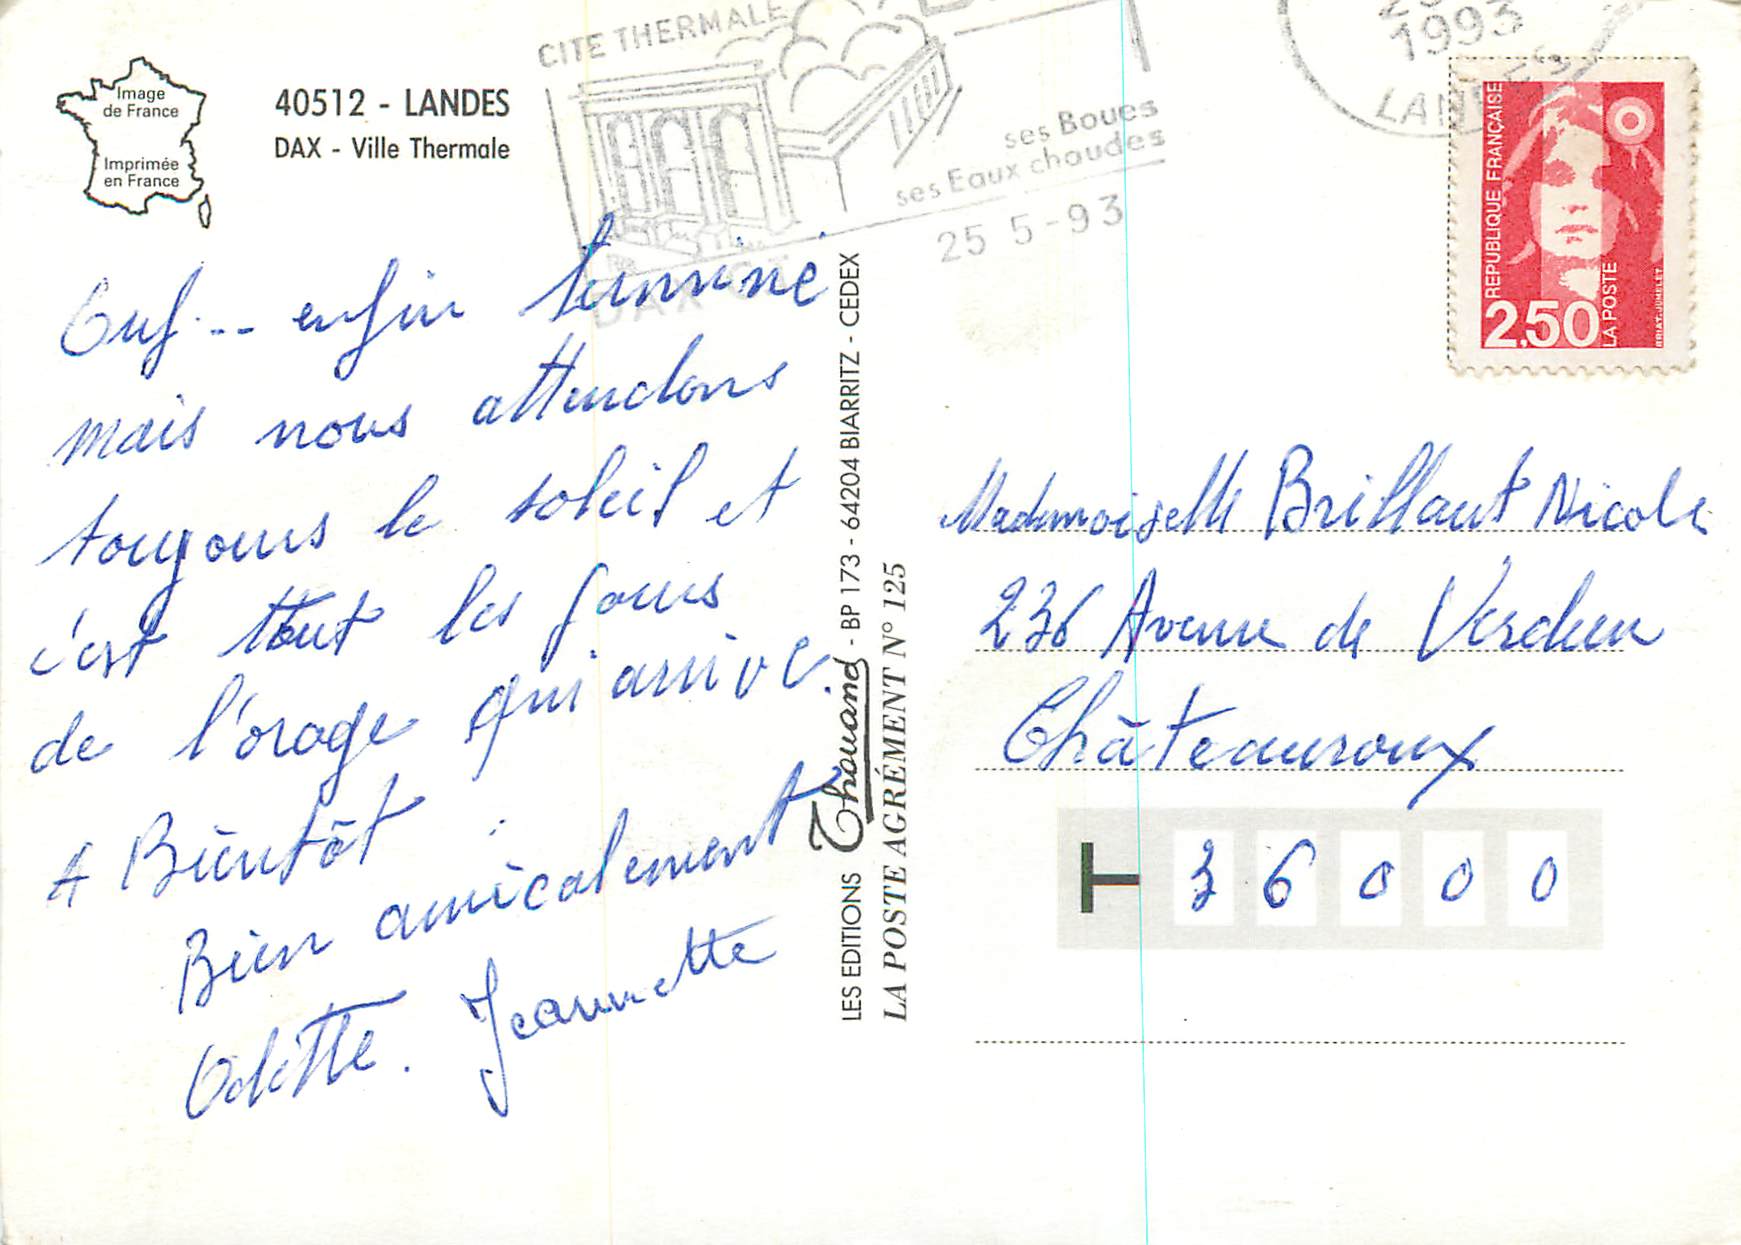 Image
de France
Imprimée
en France
40512 - LANDES
DAX - Ville Thermale
CITE THERMALE
ses Boues
ses Eaux chaudes
25 5-93
DAX
1993
LANDES
REPUBLIQUE FRANÇAISE
2,50
LA POSTE
BRIAT-JUMELET
Ouf... enfin terminé
mais nous attendons
toujours le soleil et
c'est tout les jours
de l'orage qui arrive.
A Bientôt
Bien amicalement
Odette. Jeannette
LES EDITIONS Thouand - BP 173 - 64204 BIARRITZ - CEDEX
LA POSTE AGRÉMENT N° 125
Mademoiselle Brillaut Nicole
236 Avenue de Verdun
Châteauroux
36000